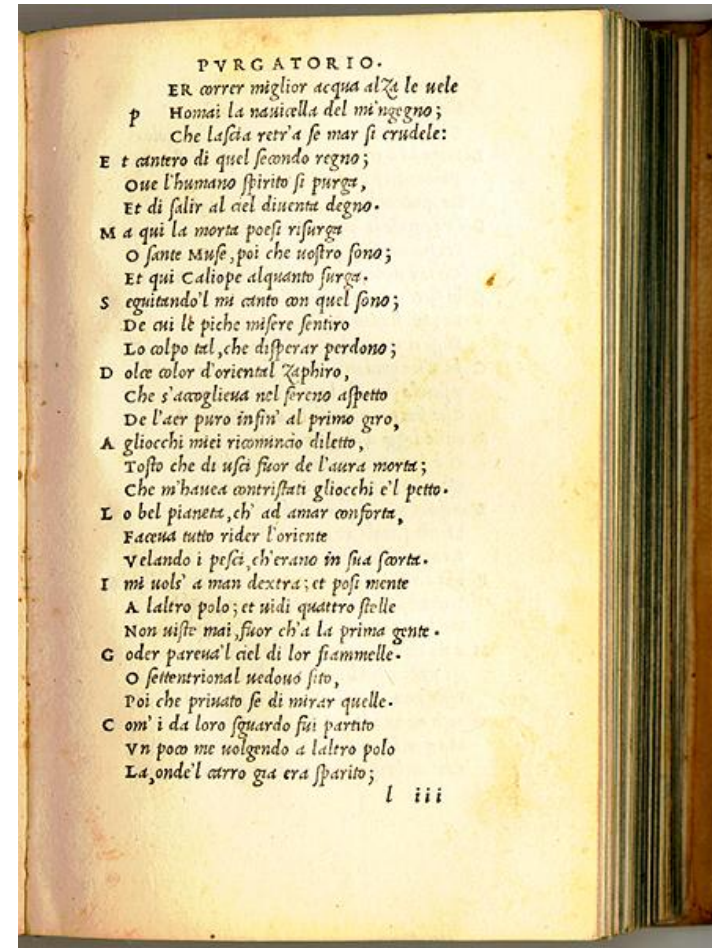 PVRGATORIO.
ER correr miglior acqua alza le uele
p Homai la nauicella del mi'ngegno;
Che laſcia retr'a ſe mar ſi crudele:
E t cantero di quel ſecondo regno;
Oue l'humano ſpirito ſi purga,
Et di ſalir al ciel diuenta degno.
M a qui la morta poeſi riſurga
O ſante Muſe, poi che uoſtro ſono;
Et qui Caliope alquanto ſurga.
S eguitando'l mi canto con quel ſono;
De cui le piche miſere ſentiro
Lo colpo tal, che diſperar perdono;
D olce color d'oriental Zaphiro,
Che s'accoglieua nel ſereno aſpetto
De l'aer puro inſin' al primo giro,
A gliocchi miei ricominciò diletto,
Toſto che di uſci fuor de l'aura morta;
Che m'hauea contriſtati gliocchi e'l petto.
L o bel pianeta, ch' ad amar conforta,
Faceua tutto rider l'oriente
Velando i peſci, ch'erano in ſua ſcorta.
I mi uolſ' a man dextra; et poſi mente
A laltro polo; et uidi quattro ſtelle
Non uiſte mai, fuor ch'a la prima gente.
G oder pareua'l ciel di lor fiammelle.
O ſettentrional uedouo ſito,
Poi che priuato ſe di mirar quelle.
C om' i da loro ſguardo fui partito
Vn poco me uolgendo a laltro polo
La, onde'l carro gia era ſparito;
l iii